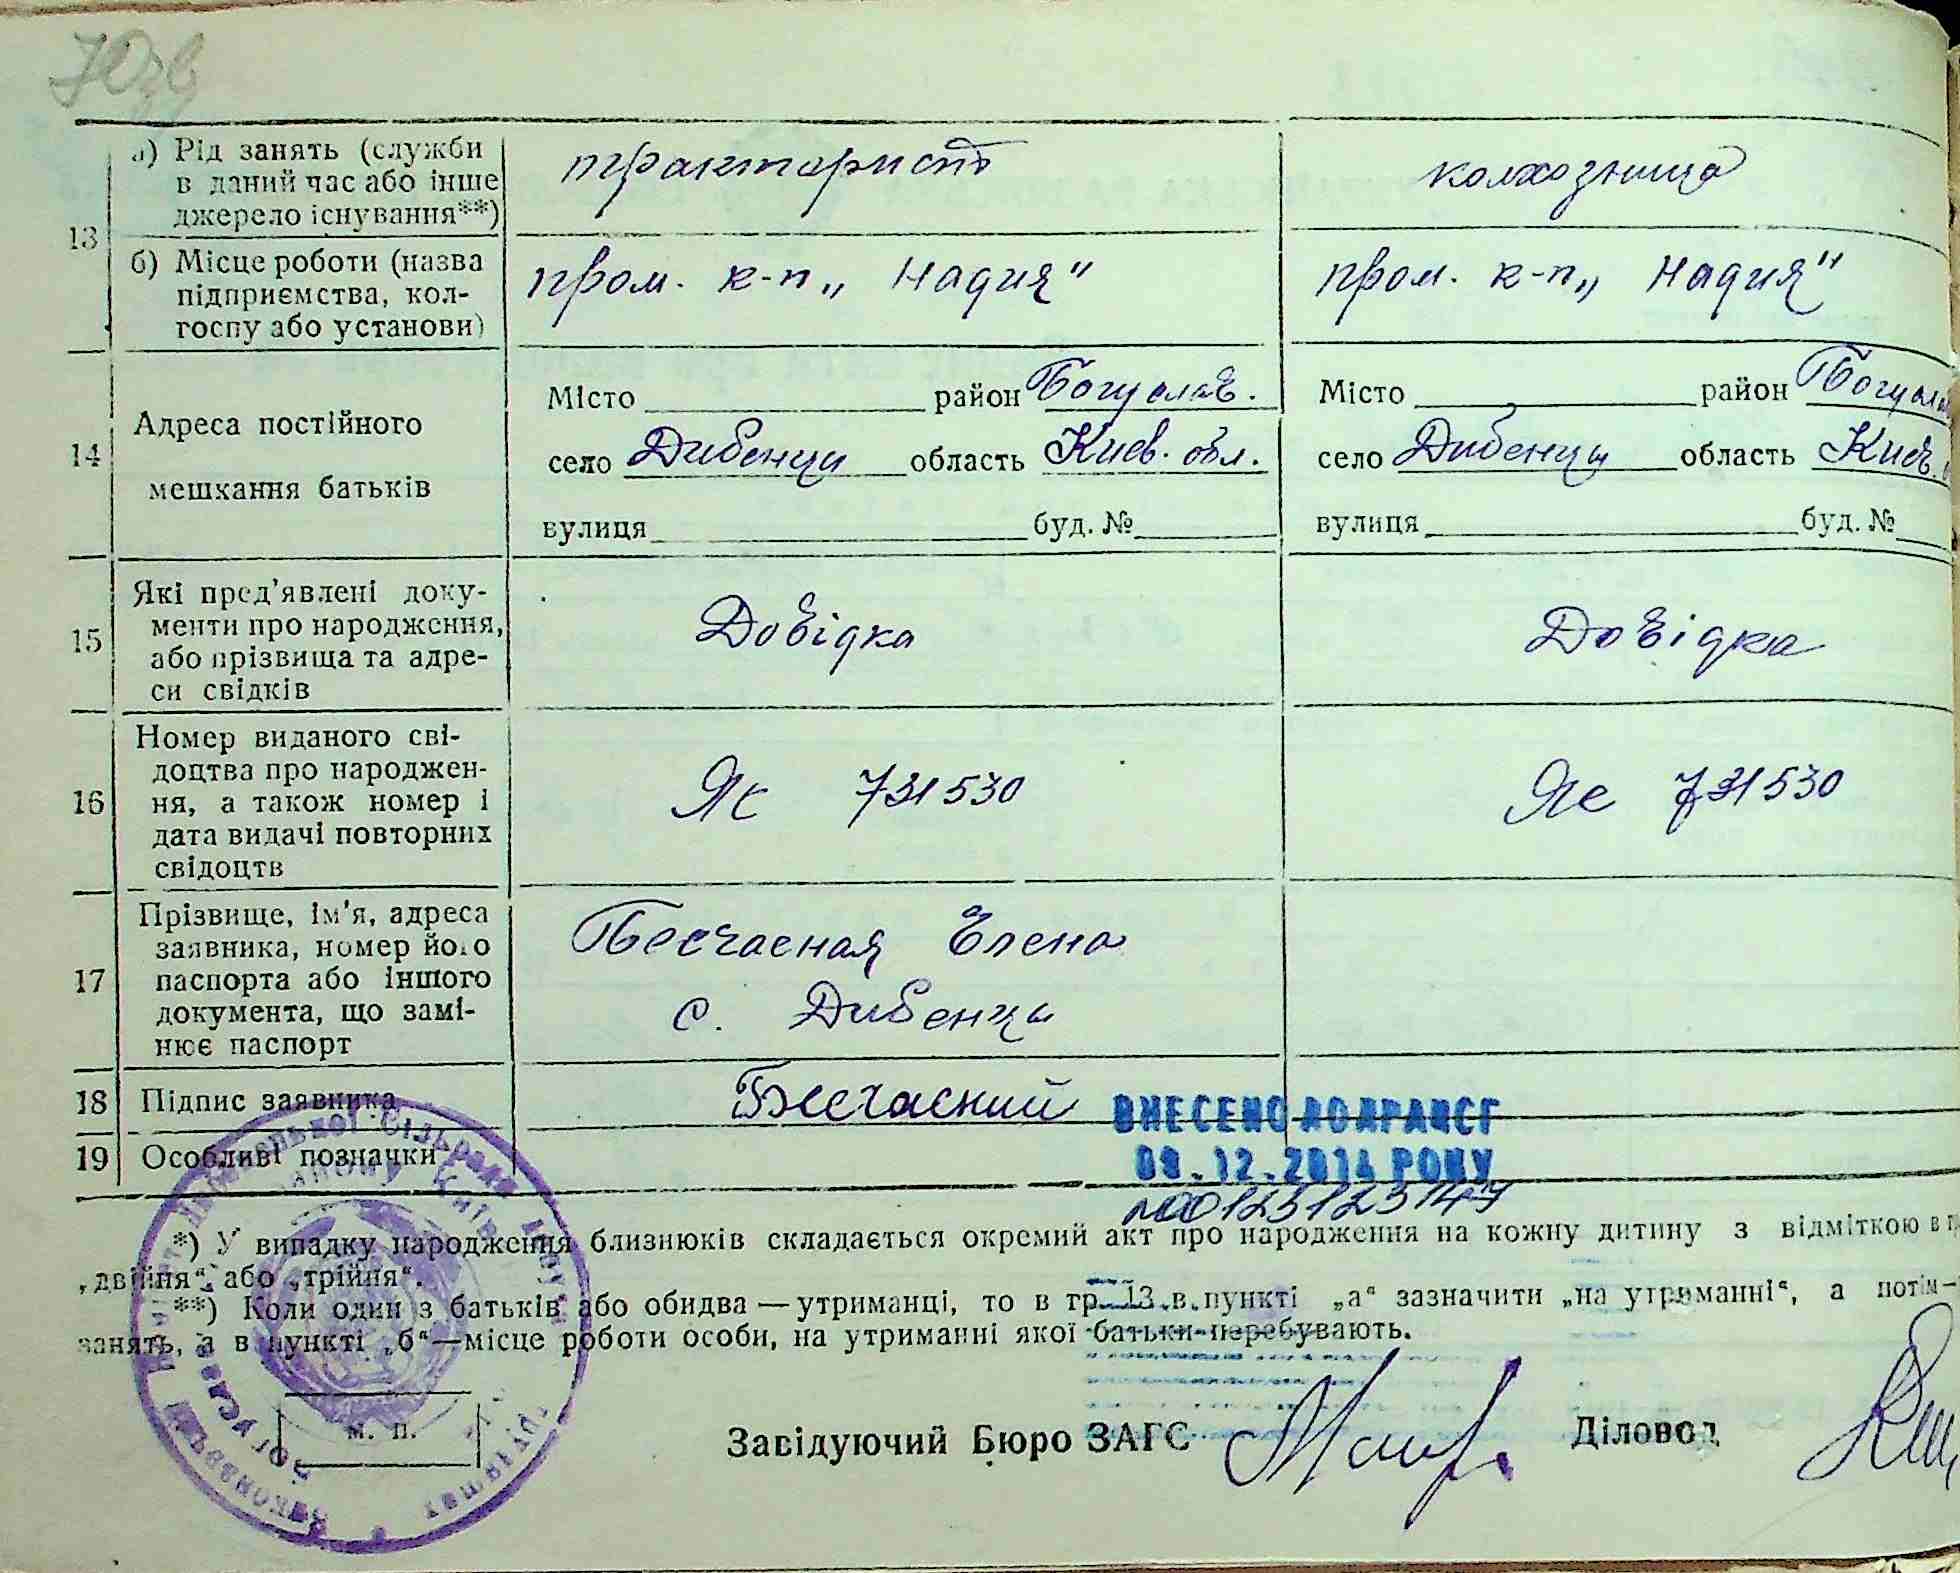 а) Рід занять (служби
в даний час або інше
джерело існування**)
тракторист
колхозница
13
б) Місце роботи (назва
підприємства, кол-
госпу або установи)
пром. к-п „Надия"
пром. к-п „Надия"
14
Адреса постійного
мешкання батьків
Місто район Богуслав.
село Дибенци область Киев. обл.
вулиця буд. №
Місто район Богуслав
село Дибенци область Киев.
вулиця буд. №
15
Які пред'явлені доку-
менти про народження,
або прізвища та адре-
си свідків
Довідка
Довідка
16
Номер виданого сві-
доцтва про народжен-
ня, а також номер і
дата видачі повторних
свідоцтв
ЯЄ 731530
ЯЄ 731530
17
Прізвище, ім'я, адреса
заявника, номер його
паспорта або іншого
документа, що замі-
нює паспорт
Бесчасная Елена
с. Дибенци
18 Підпис заявника
Бесчасний
19 Особливі позначки
ВНЕСЕНО ДО ДРАЦСГ
09.12.2014 РОКУ
№00125123147
*) У випадку народження близнюків складається окремий акт про народження на кожну дитину з відміткою в
„двійня", або „трійня".
**) Коли один з батьків або обидва — утриманці, то в гр. 13 в пункті „а" зазначити „на утриманні", а потім—
занять, а в пункті „б"—місце роботи особи, на утриманні якої батьки перебувають.
м. п.
Завідуючий Бюро ЗАГС
Діловод